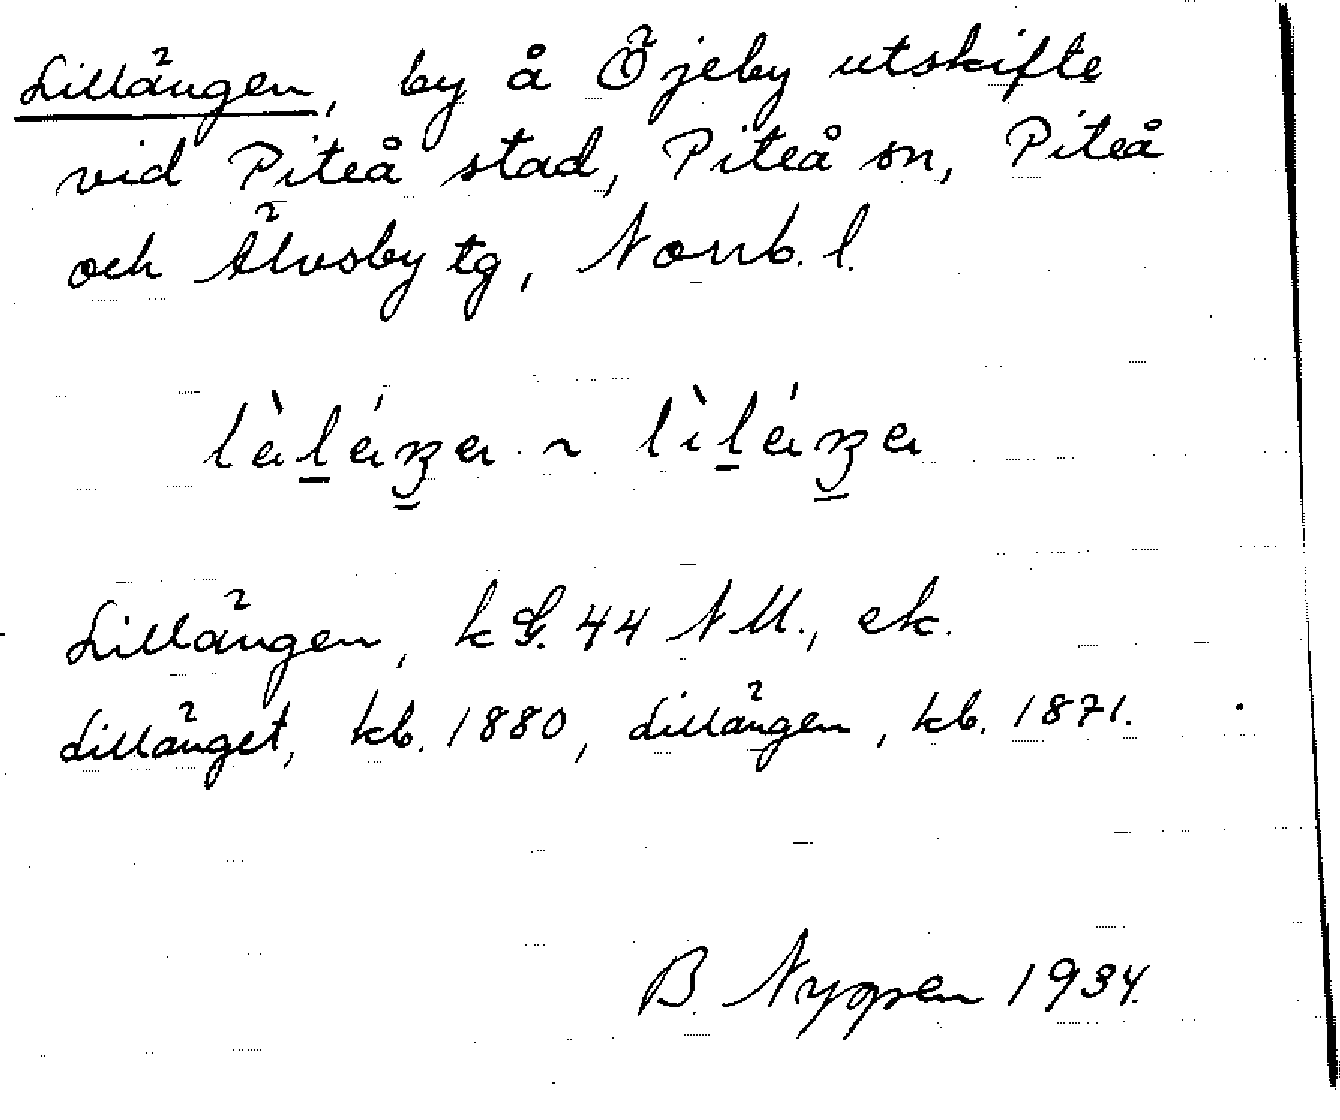 Lillängen, by å Öjeby utskifte
vid Piteå stad, Piteå sn, Piteå
och Älvsby tg, Norrb. l.
Lillängen, k G. 44 NU., ek.
Lillänget, kb. 1880, Lillängen, kb. 1871.
B. Nygren 1934.